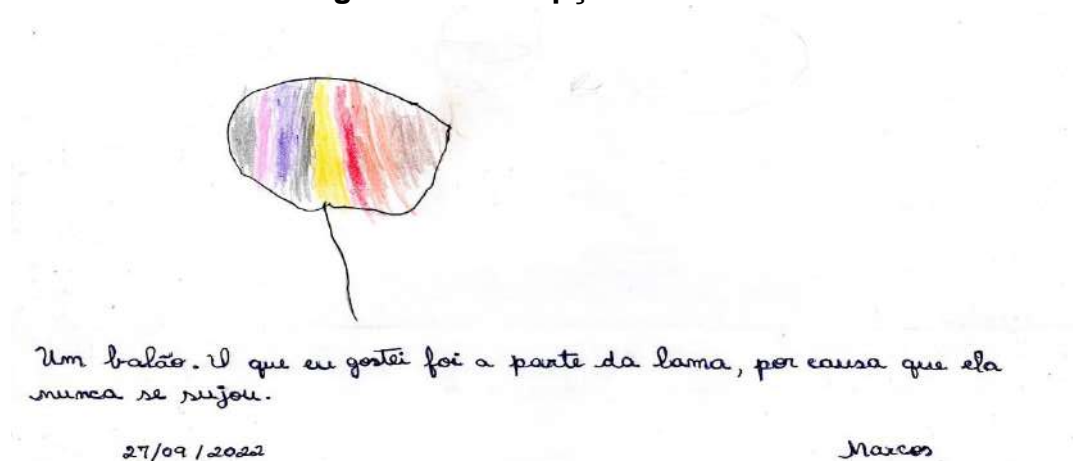 Um balão. O que eu gostei foi a parte da lama, por causa que ela
nunca se sujou.
27/09/2022
Marcos